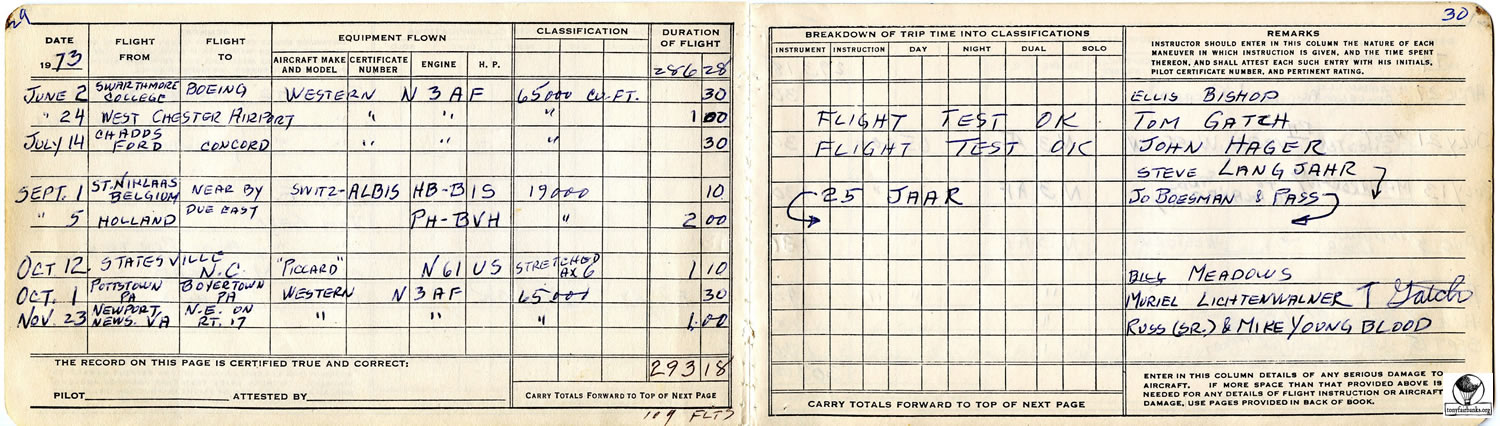 29
DATE
1973
FLIGHT FROM
FLIGHT TO
EQUIPMENT FLOWN
AIRCRAFT MAKE AND MODEL
CERTIFICATE NUMBER
ENGINE
H. P.
CLASSIFICATION
DURATION OF FLIGHT
286 28
JUNE 2 SWARTHMORE COLLEGE BOEING WESTERN N3AF 65000 CU. FT. 30
" 24 WEST CHESTER AIRPORT " " " 1 00
JULY 14 CHADDS FORD CONCORD " " " 30
SEPT. 1 ST. NIKLAAS BELGIUM NEAR BY SWITZ-ALBIS HB-BIS 19000 10
" 5 HOLLAND DUE EAST PH-BVH " 2 00
OCT 12. STATESVILLE N.C. "PICCARD" N61US STRETCHED AX6 1 10
OCT. 1 POTTSTOWN PA BOYERTOWN PA WESTERN N3AF 65000 30
NOV. 23 NEWPORT NEWS. VA N.E. ON RT. 17 " " " 1.00
THE RECORD ON THIS PAGE IS CERTIFIED TRUE AND CORRECT:
293 18
PILOT ATTESTED BY
CARRY TOTALS FORWARD TO TOP OF NEXT PAGE
109 FLTS
30
BREAKDOWN OF TRIP TIME INTO CLASSIFICATIONS
INSTRUMENT INSTRUCTION DAY NIGHT DUAL SOLO
REMARKS
INSTRUCTOR SHOULD ENTER IN THIS COLUMN THE NATURE OF EACH
MANEUVER IN WHICH INSTRUCTION IS GIVEN, AND THE TIME SPENT
THEREON, AND SHALL ATTEST EACH SUCH ENTRY WITH HIS INITIALS,
PILOT CERTIFICATE NUMBER, AND PERTINENT RATING.
ELLIS BISHOP
FLIGHT TEST OK TOM GATCH
FLIGHT TEST OK JOHN HAGER
STEVE LANGJAHR
25 JAAR JO BOESMAN & PASS
BILL MEADOWS
MURIEL LICHTENWALNER T Gatch
RUSS (SR.) & MIKE YOUNGBLOOD
ENTER IN THIS COLUMN DETAILS OF ANY SERIOUS DAMAGE TO
AIRCRAFT. IF MORE SPACE THAN THAT PROVIDED ABOVE IS
NEEDED FOR ANY DETAILS OF FLIGHT INSTRUCTION OR AIRCRAFT
DAMAGE, USE PAGES PROVIDED IN BACK OF BOOK.
CARRY TOTALS FORWARD TO TOP OF NEXT PAGE
tonyfairbanks.org